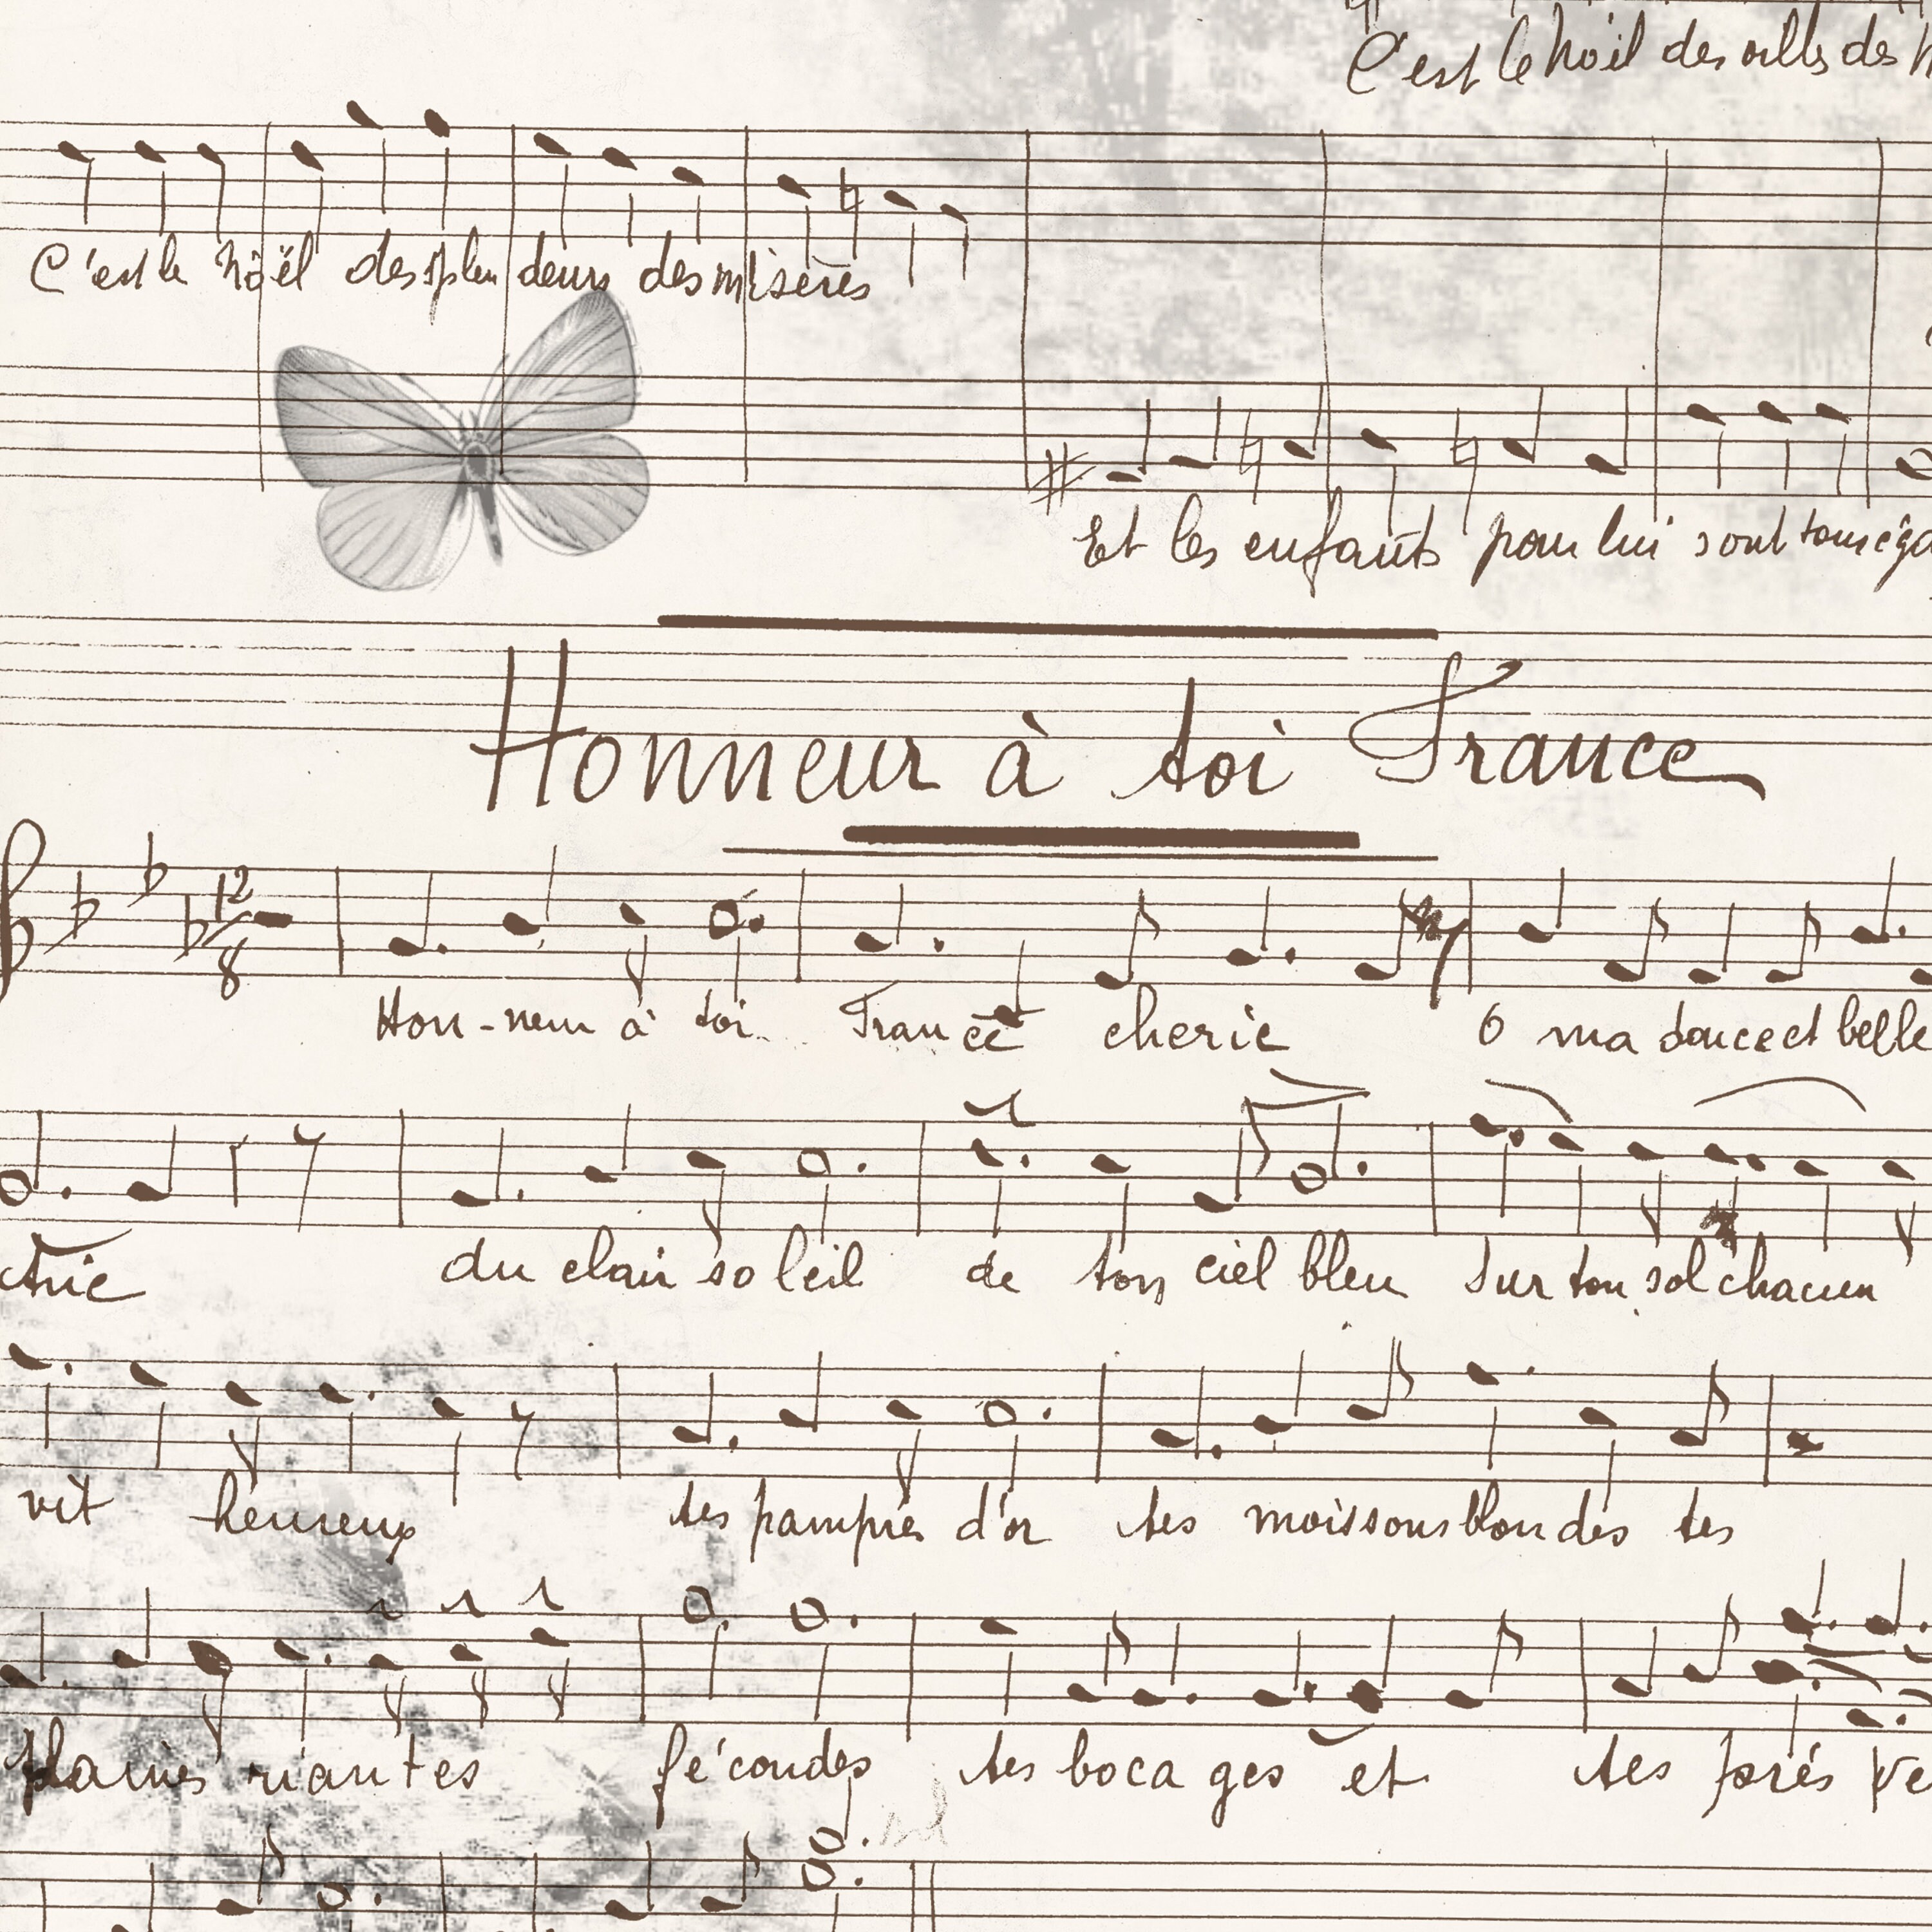 C'est le Noël des villes des
C'est le Noël des splen deurs des misères
Et les enfants pour lui sont tous éga
Honneur à toi France
12
8
Hon-neur à toi Fran ce cherie O ma douce et belle
trie du clair so leil de ton ciel bleu Sur ton sol chacun
vit heureux tes pampres d'or tes moissons blon des tes
plaines rian tes fé condes tes boca ges et tes prés ve